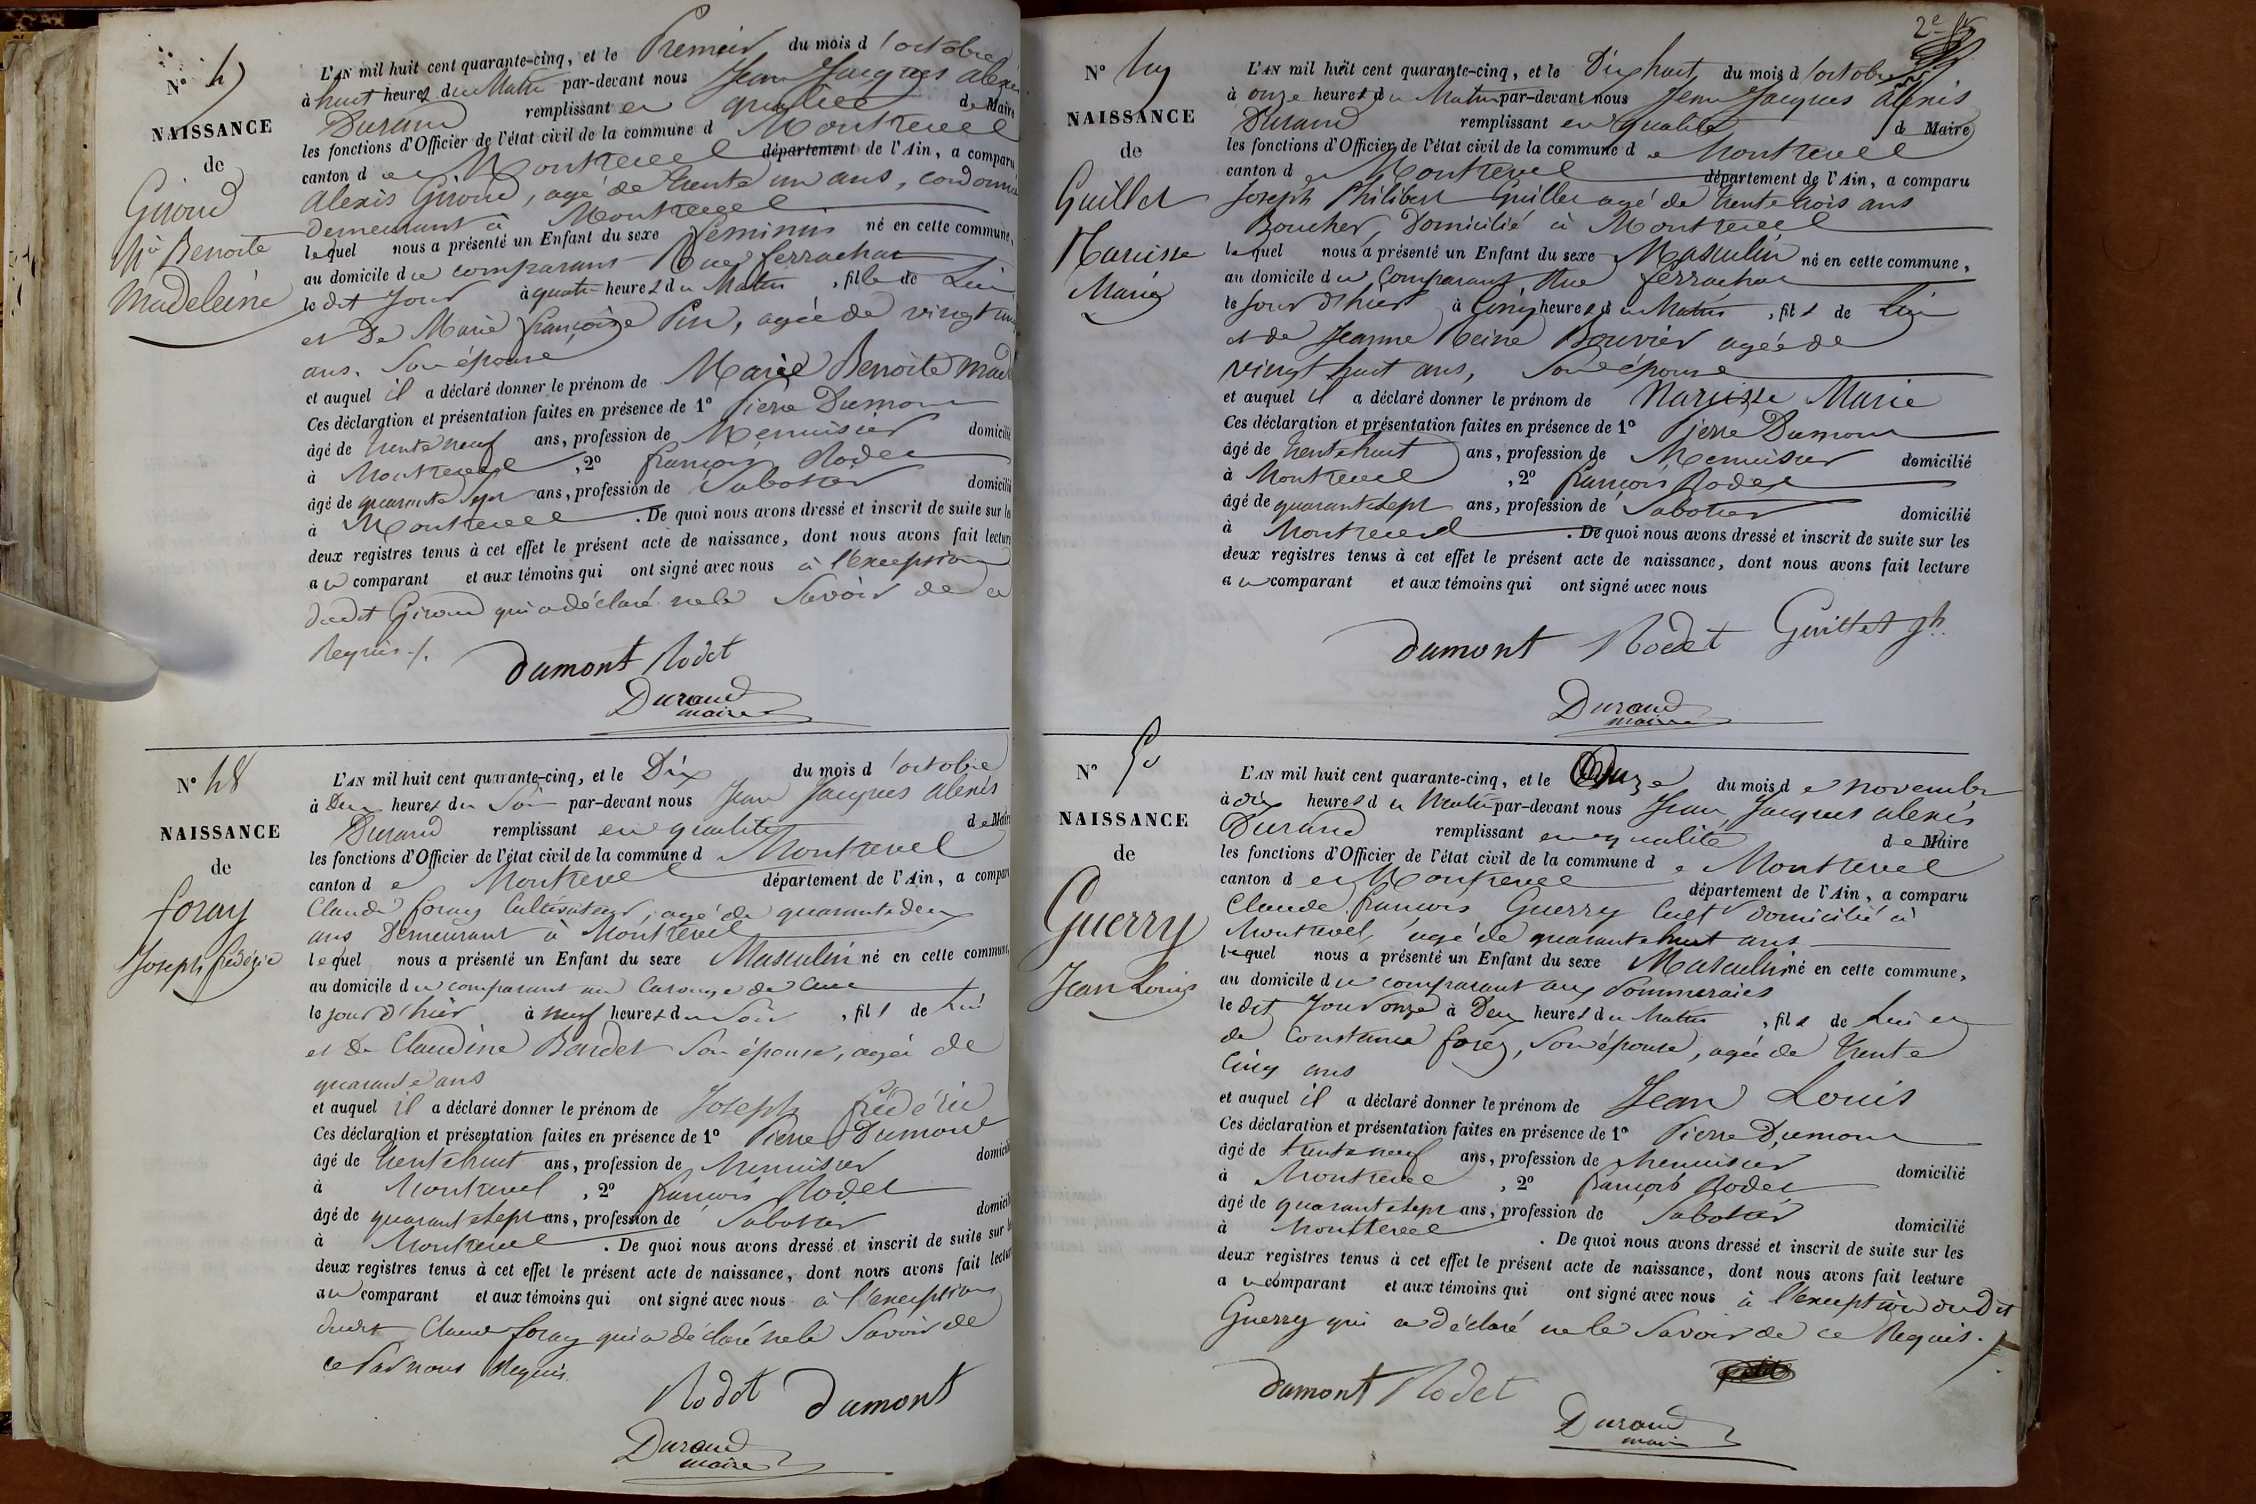 N° 47
NAISSANCE
de
Giroud
Mie Benoite
Madeleine
L'AN mil huit cent quarante-cinq, et le Premier du mois d'octobre
à huit heures du Matin par-devant nous Jean Jacques alexis
Durand remplissant en qualité de Maire
les fonctions d'Officier de l'état civil de la commune d Montrevel
canton de Montrevel département de l'Ain, a comparu
alexis Giroud, agé de trente un ans, cordonnier
demeurant à Montrevel
lequel nous a présenté un Enfant du sexe féminin né en cette commune,
au domicile du comparant Rue ferrachat
le dit Jour à quatre heures du Matin, fille de Lui
et De Marie françoise Pin, agée de vingt
ans. Son épouse
et auquel il a déclaré donner le prénom de Marie Benoite Mad
Ces déclaration et présentation faites en présence de 1° Pierre Dumont
âgé de trente neuf ans, profession de Menuisier domicilié
à Montrevel, 2° françois Rodet
âgé de quarante Sept ans, profession de Sabotier domicilié
à Montrevel. De quoi nous avons dressé et inscrit de suite sur les
deux registres tenus à cet effet le présent acte de naissance, dont nous avons fait lecture
au comparant et aux témoins qui ont signé avec nous à l'exception
dudit Giroud qui a déclaré ne le Savoir de ce
Requis ./.
dumont Rodet
Durand
maire
N° 48
NAISSANCE
de
foray
Joseph frédéric
L'AN mil huit cent quarante-cinq, et le Dix du mois d'octobre
à Deux heures du Soir par-devant nous Jean Jacques alexis
Durand remplissant en qualité de Maire
les fonctions d'Officier de l'état civil de la commune d Montrevel
canton de Montrevel département de l'Ain, a comparu
Claude foray Cultivateur, agé de quarante deux
ans Demeurant à Montrevel
lequel nous a présenté un Enfant du sexe Masculin né en cette commune,
au domicile du comparant au Carouge de
le jour d'hier à neuf heures du Soir, fils de Lui
et De Claudine Bandet Son épouse, agée de
quarante ans
et auquel il a déclaré donner le prénom de Joseph frédéric
Ces déclaration et présentation faites en présence de 1° Pierre Dumont
âgé de trente huit ans, profession de Menuisier domicilié
à Montrevel, 2° françois Rodet
âgé de quarante Sept ans, profession de Sabotier domicilié
à Montrevel. De quoi nous avons dressé et inscrit de suite sur les
deux registres tenus à cet effet le présent acte de naissance, dont nous avons fait lecture
au comparant et aux témoins qui ont signé avec nous à l'exception
dudit Claude foray qui a déclaré ne le Savoir de
ce Par nous Requis
Rodet dumont
Durand
maire
N° 49
NAISSANCE
de
Guillet
Narcisse
Marie
L'AN mil huit cent quarante-cinq, et le Dix huit du mois d'octobre
à onze heures du Matin par-devant nous Jean Jacques Alexis
Durand remplissant en qualité de Maire
les fonctions d'Officier de l'état civil de la commune de Montrevel
canton de Montrevel département de l'Ain, a comparu
Joseph Philibert Guillet agé de trente trois ans
Boucher, Domicilié à Montrevel
lequel nous a présenté un Enfant du sexe Masculin né en cette commune,
au domicile du Comparant, Rue ferrachat
le Jour d'hier à Cinq heures du Matin, fils de Lui
et de Jeanne Reine Bouvier agée de
vingt huit ans, Son épouse
et auquel il a déclaré donner le prénom de Narcisse Marie
Ces déclaration et présentation faites en présence de 1° Pierre Dumont
âgé de trente huit ans, profession de Menuisier domicilié
à Montrevel, 2° françois Rodet
âgé de quarante sept ans, profession de Sabotier domicilié
à Montrevel. De quoi nous avons dressé et inscrit de suite sur les
deux registres tenus à cet effet le présent acte de naissance, dont nous avons fait lecture
au comparant et aux témoins qui ont signé avec nous
dumont Rodet Guillet ph.
Durand
maire
N° 50
NAISSANCE
de
Guerry
Jean Louis
L'AN mil huit cent quarante-cinq, et le du mois de novembre
à dix heures du Matin par-devant nous Jean Jacques alexis
Durand remplissant en qualité de Maire
les fonctions d'Officier de l'état civil de la commune de Montrevel
canton de Montrevel département de l'Ain, a comparu
Claude françois Guerry Cult domicilié à
Montrevel, agé de quarante huit ans
lequel nous a présenté un Enfant du sexe Masculin né en cette commune,
au domicile du comparant aux Sommeraies
le dit Jour onze à Deux heures du Matin, fils de Lui et
de Constance forey, Son épouse, agée de trente
Cinq ans
et auquel il a déclaré donner le prénom de Jean Louis
Ces déclaration et présentation faites en présence de 1° Pierre Dumont
âgé de trente neuf ans, profession de Menuisier domicilié
à Montrevel, 2° françois Rodet
âgé de quarante sept ans, profession de Sabotier domicilié
à Montrevel. De quoi nous avons dressé et inscrit de suite sur les
deux registres tenus à cet effet le présent acte de naissance, dont nous avons fait lecture
au comparant et aux témoins qui ont signé avec nous à l'exception dudit
Guerry qui a déclaré ne le Savoir de ce Requis ./.
dumont Rodet
Durand
maire